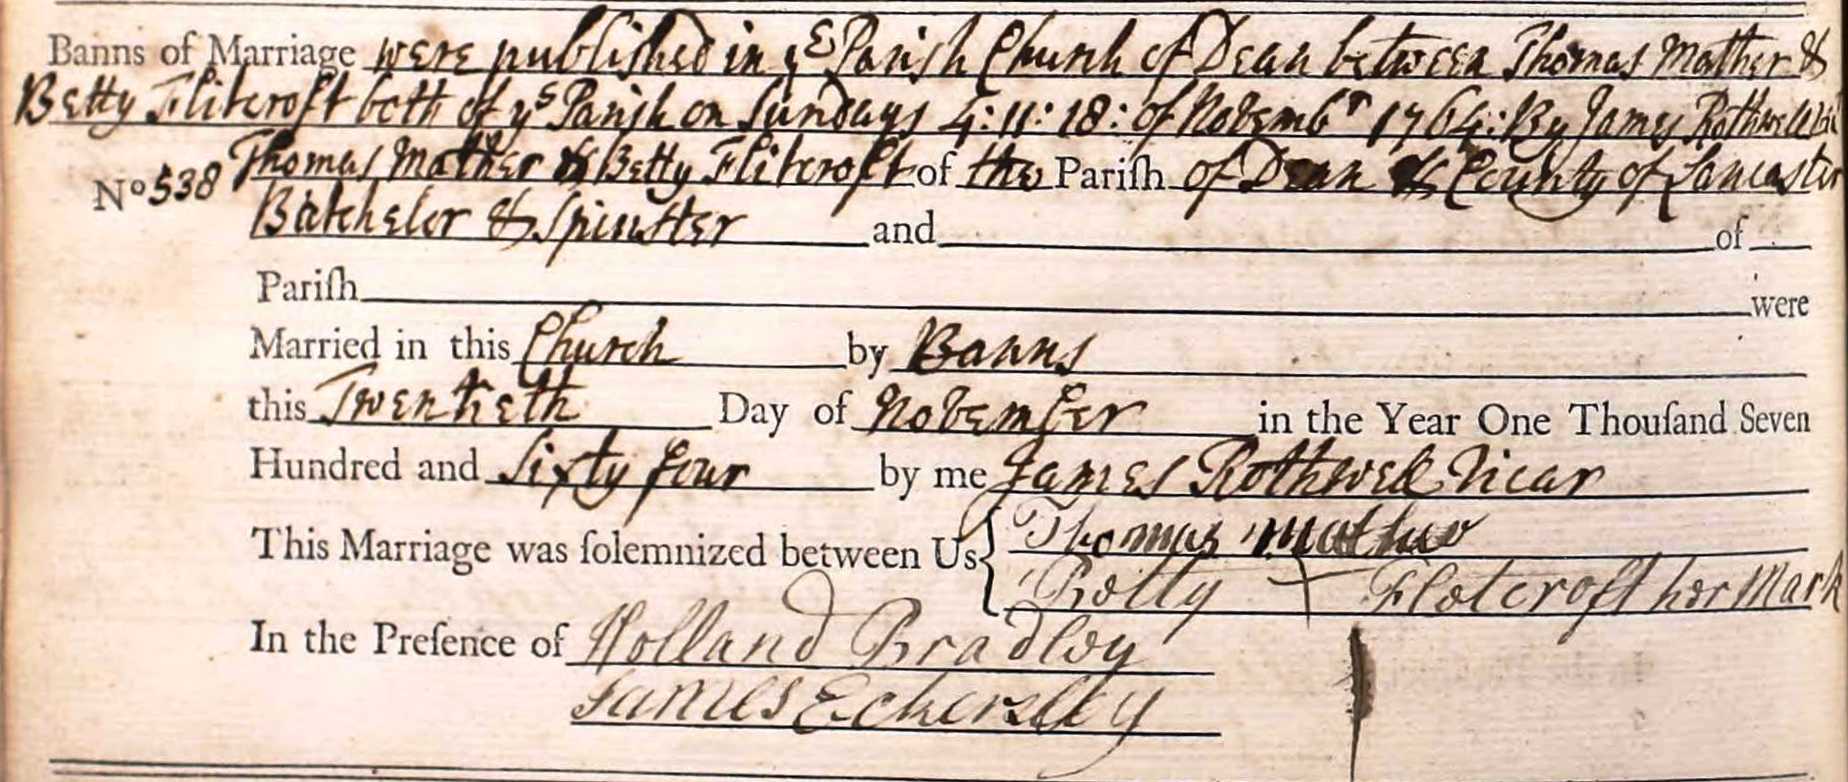 Banns of Marriage were published in yᵉ Parish Church of Dean between Thomas Mather &
Betty Flitcroft both of yˢ Parish on Sundays 4: 11: 18: of Novembʳ 1764: By James Rothwell Vic
Nº 538 Thomas Mather & Betty Flitcroft of the Pariſh of Dean & County of Lancaster
Batchelor & Spinster and of
Pariſh were
Married in this Church by Banns
this Twentieth Day of November in the Year One Thouſand Seven
Hundred and Sixty four by me James Rothwell Vicar
This Marriage was ſolemnized between Us { Thomas Mather
Betty + Flotcroft her Mark
In the Preſence of Holland Bradley
James Eckersley